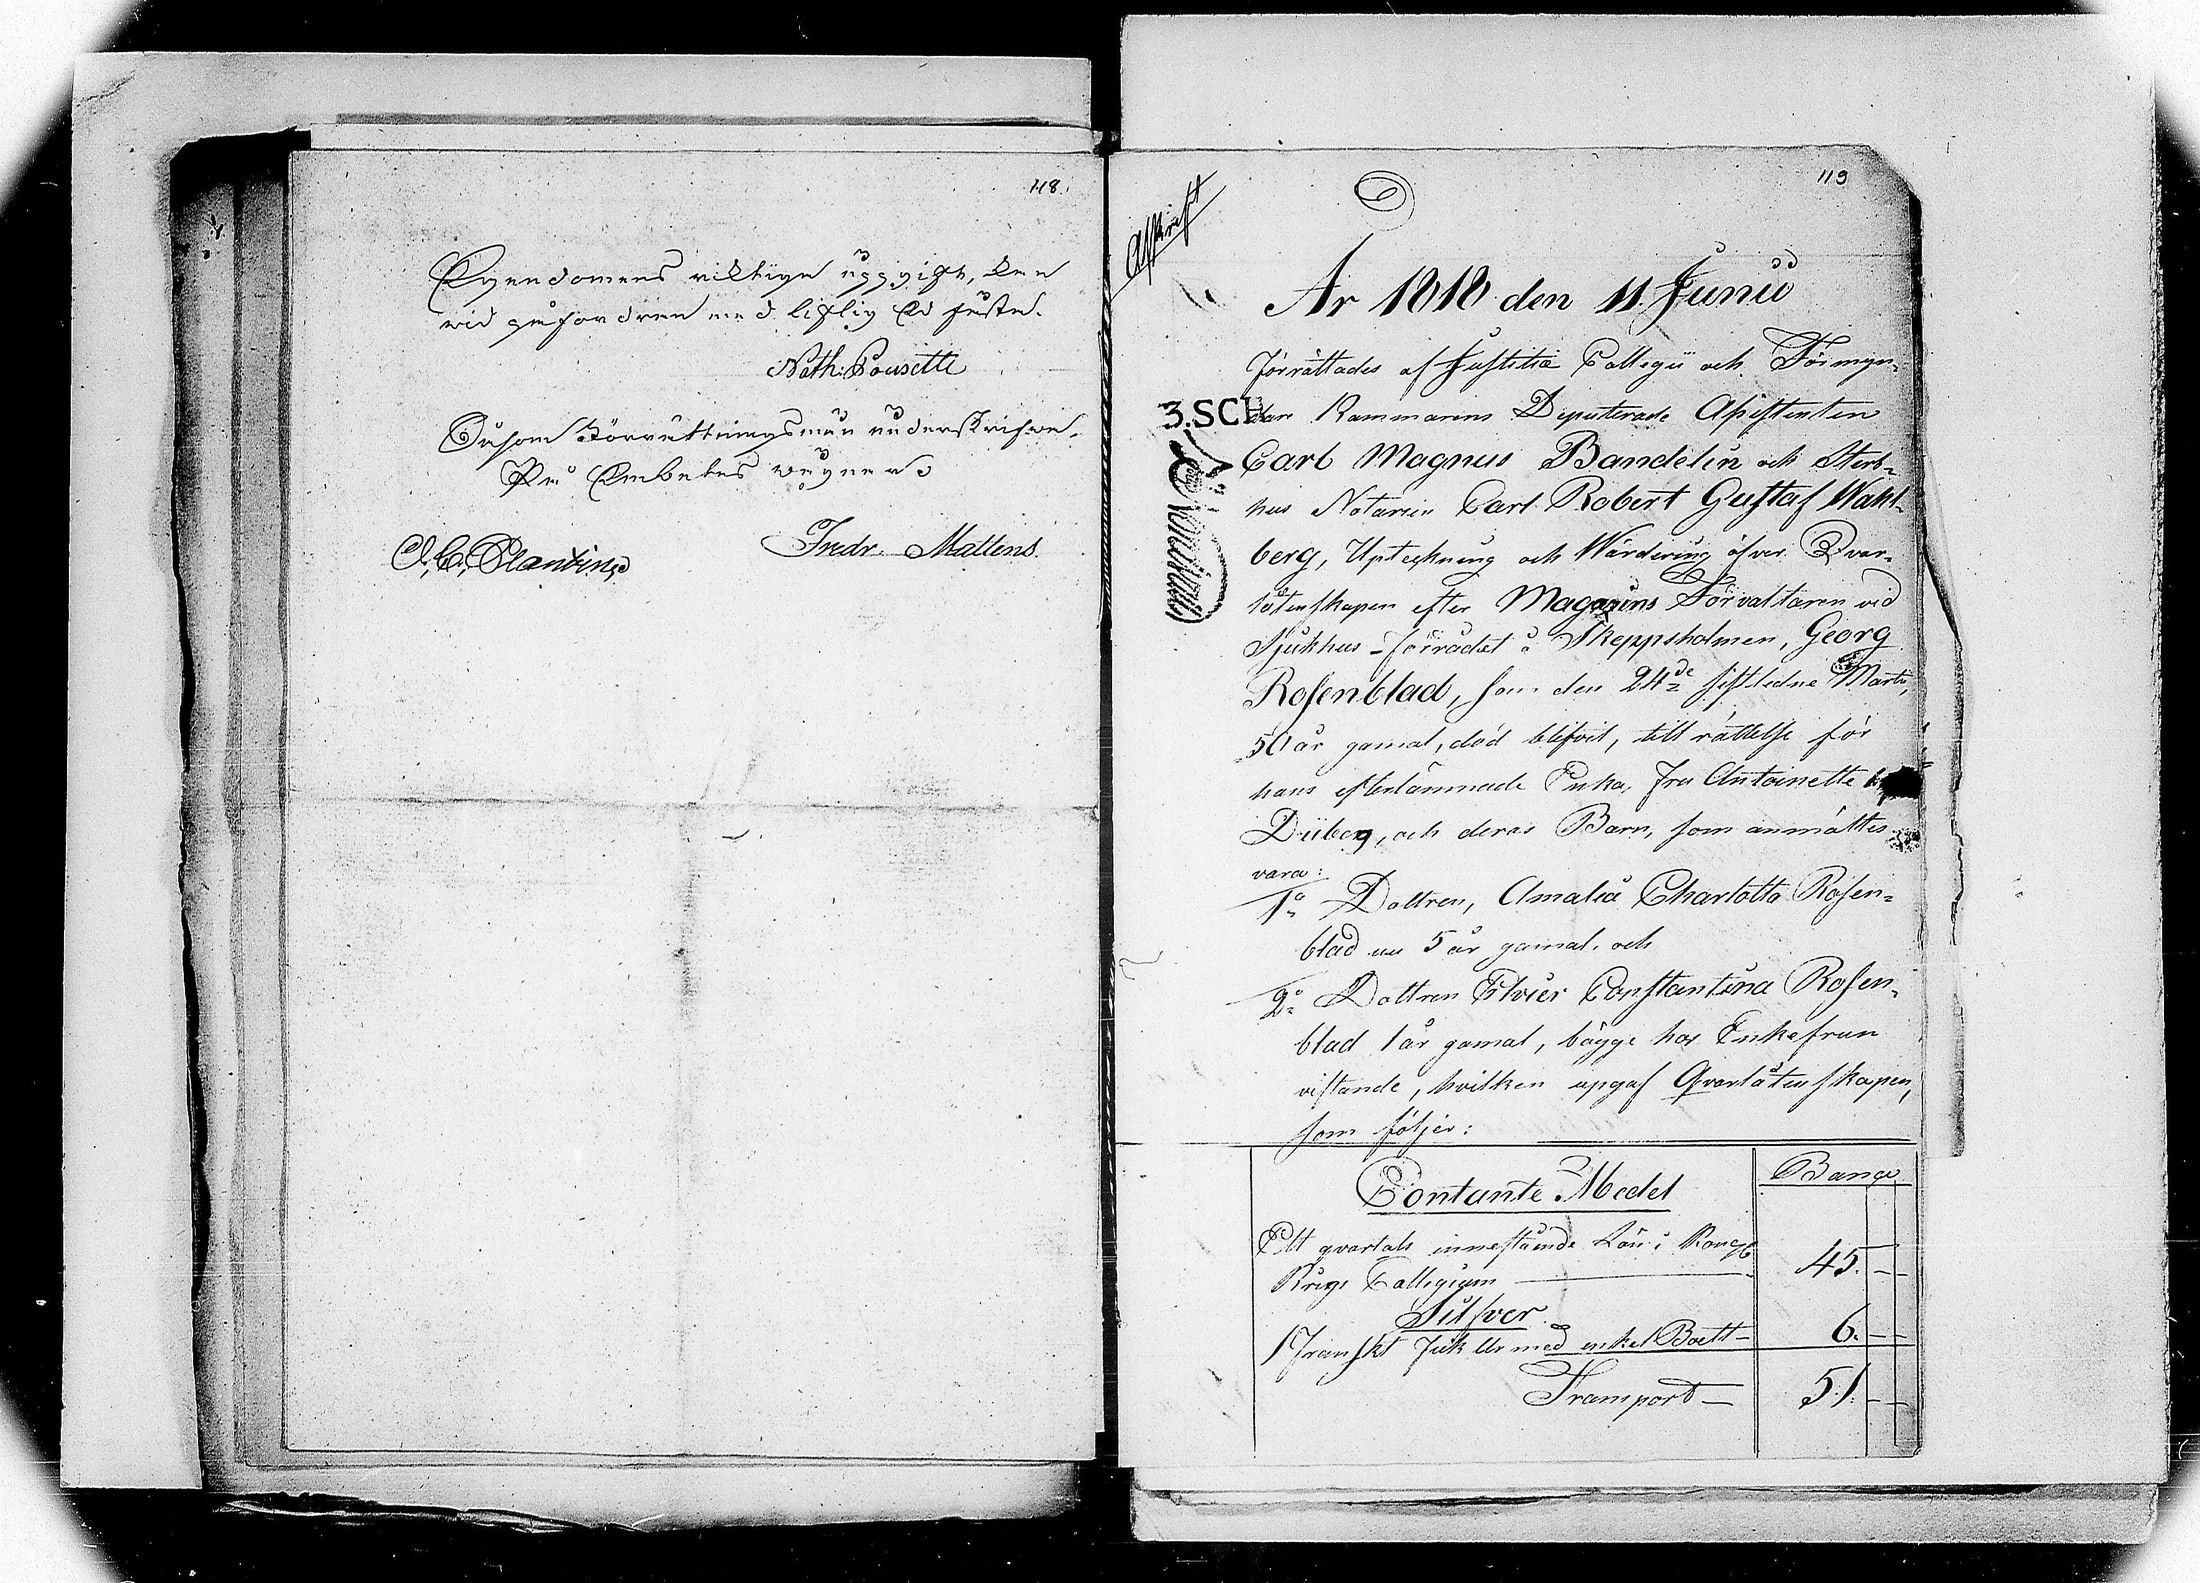 118.
Egendomens riktiga uppgift, kan
vid påfordran med liflig Ed fästa.
Nath: Pousette
Såsom Förrättningsmän underskrifva.
På Embetes vägnar
O. C. Plantin
Fredr. Mattens
119
Afskrift
År 1818 den 11 Junii
förrättades af Justitiæ Collegii och Förmyn=
dare Kammarens Deputerade Assistenten
3.SCH
Carl Magnus Bandelin och Sterb=
hus Notarien Carl Robert Gustaf Wahl=
berg, Upteckning och Wärdering öfver Qvar=
låtenskapen efter Magazins Förvaltaren vid
Sjukhus-förrådet å Skeppsholmen, Georg
Rosenblad, som den 24de sistledne Martii,
50 år gamal, död blifvit, till rättelse för
hans efterlämnade Enka, fru Antoinette
Düberg, och deras Barn, som anmältes
vara:
1o Dottren, Amalia Charlotta Rosen=
blad nu 5 år gamal, och
2o Dottren Elvier Constantina Rosen=
blad 1 år gamal, bägge hos Enkefrun
vistande, hvilken upgaf Qvarlåtenskapen,
som följer:
Contante Medel
Banco
Ett qvartals innestående Lön i Kongl
Krigs Collegium 45. — —
Silfver
1 Franskt fick Ur med enkel Boett — 6. — —
Transport — 51. — —